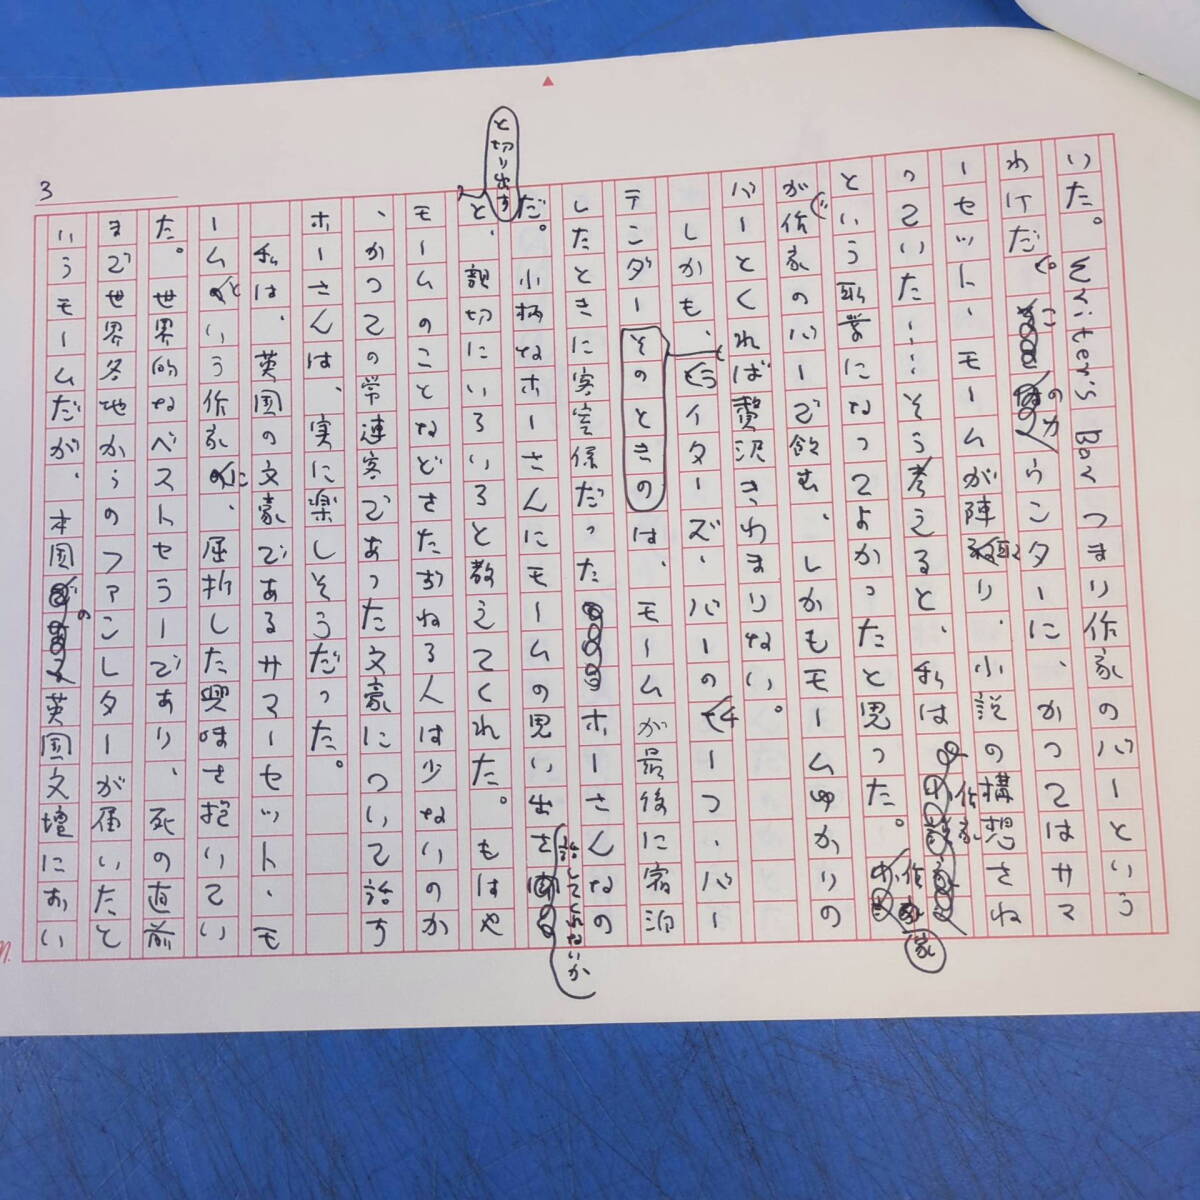 いた。Writer's Bar つまり作家のバーという
わけだ。このカウンターに、かつてはサマ
ーセット・モームが陣取り、小説の構想をね
っていた……そう考えると、私は作家
という職業になってよかったと思った。作家
が作家のバーで飲む、しかもモームゆかりの
バーとくれば贅沢きわまりない。
しかも、ライターズ・バーのチーフ・バー
テンダーそのときのは、モームが最後に宿泊
したときに客室係だったホーさんなの
だ。小柄なホーさんにモームの思い出を話してくれないか
と切り出すと、親切にいろいろと教えてくれた。もはや
モームのことなどをたずねる人は少ないのか
、かつての常連客であった文豪について話す
ホーさんは、実に楽しそうだった。
私は、英国の文豪であるサマーセット・モ
ームという作家に、屈折した興味を抱いてい
た。世界的なベストセラーであり、死の直前
まで世界各地からのファンレターが届いたと
いうモームだが、本国の英国文壇におい
3